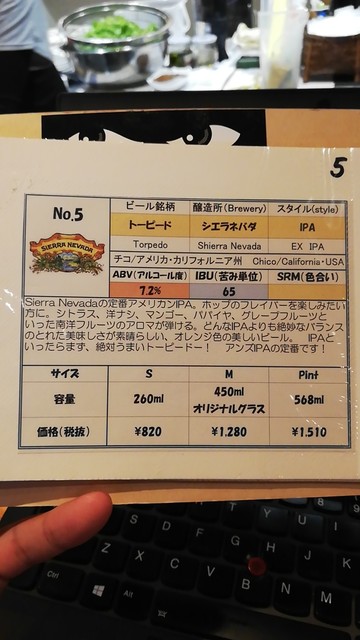 5
No.5
SIERRA NEVADA
ビール銘柄 醸造所(Brewery) スタイル(style)
トーピード シエラネバダ IPA
Torpedo Shierra Nevada EX IPA
チコ/アメリカ・カリフォルニア州 Chico/California・USA
ABV(アルコール度) IBU(苦み単位) SRM(色合い)
7.2% 65
Sierra Nevadaの定番アメリカンIPA。ホップのフレイバーを楽しみたい
方に。シトラス、洋ナシ、マンゴー、パパイヤ、グレープフルーツと
いった南洋フルーツのアロマが弾ける。どんなIPAよりも絶妙なバランス
のとれた美味しさが素晴らしい、オレンジ色の美しいビール。 IPAと
いったらまず、絶対うまいトーピードー！ アンズIPAの定番です！
サイズ S M Pint
容量 260ml 450ml オリジナルグラス 568ml
価格(税抜) ¥820 ¥1.280 ¥1.510
S D F G H J K
Z X C V B N M
Ctrl Alt